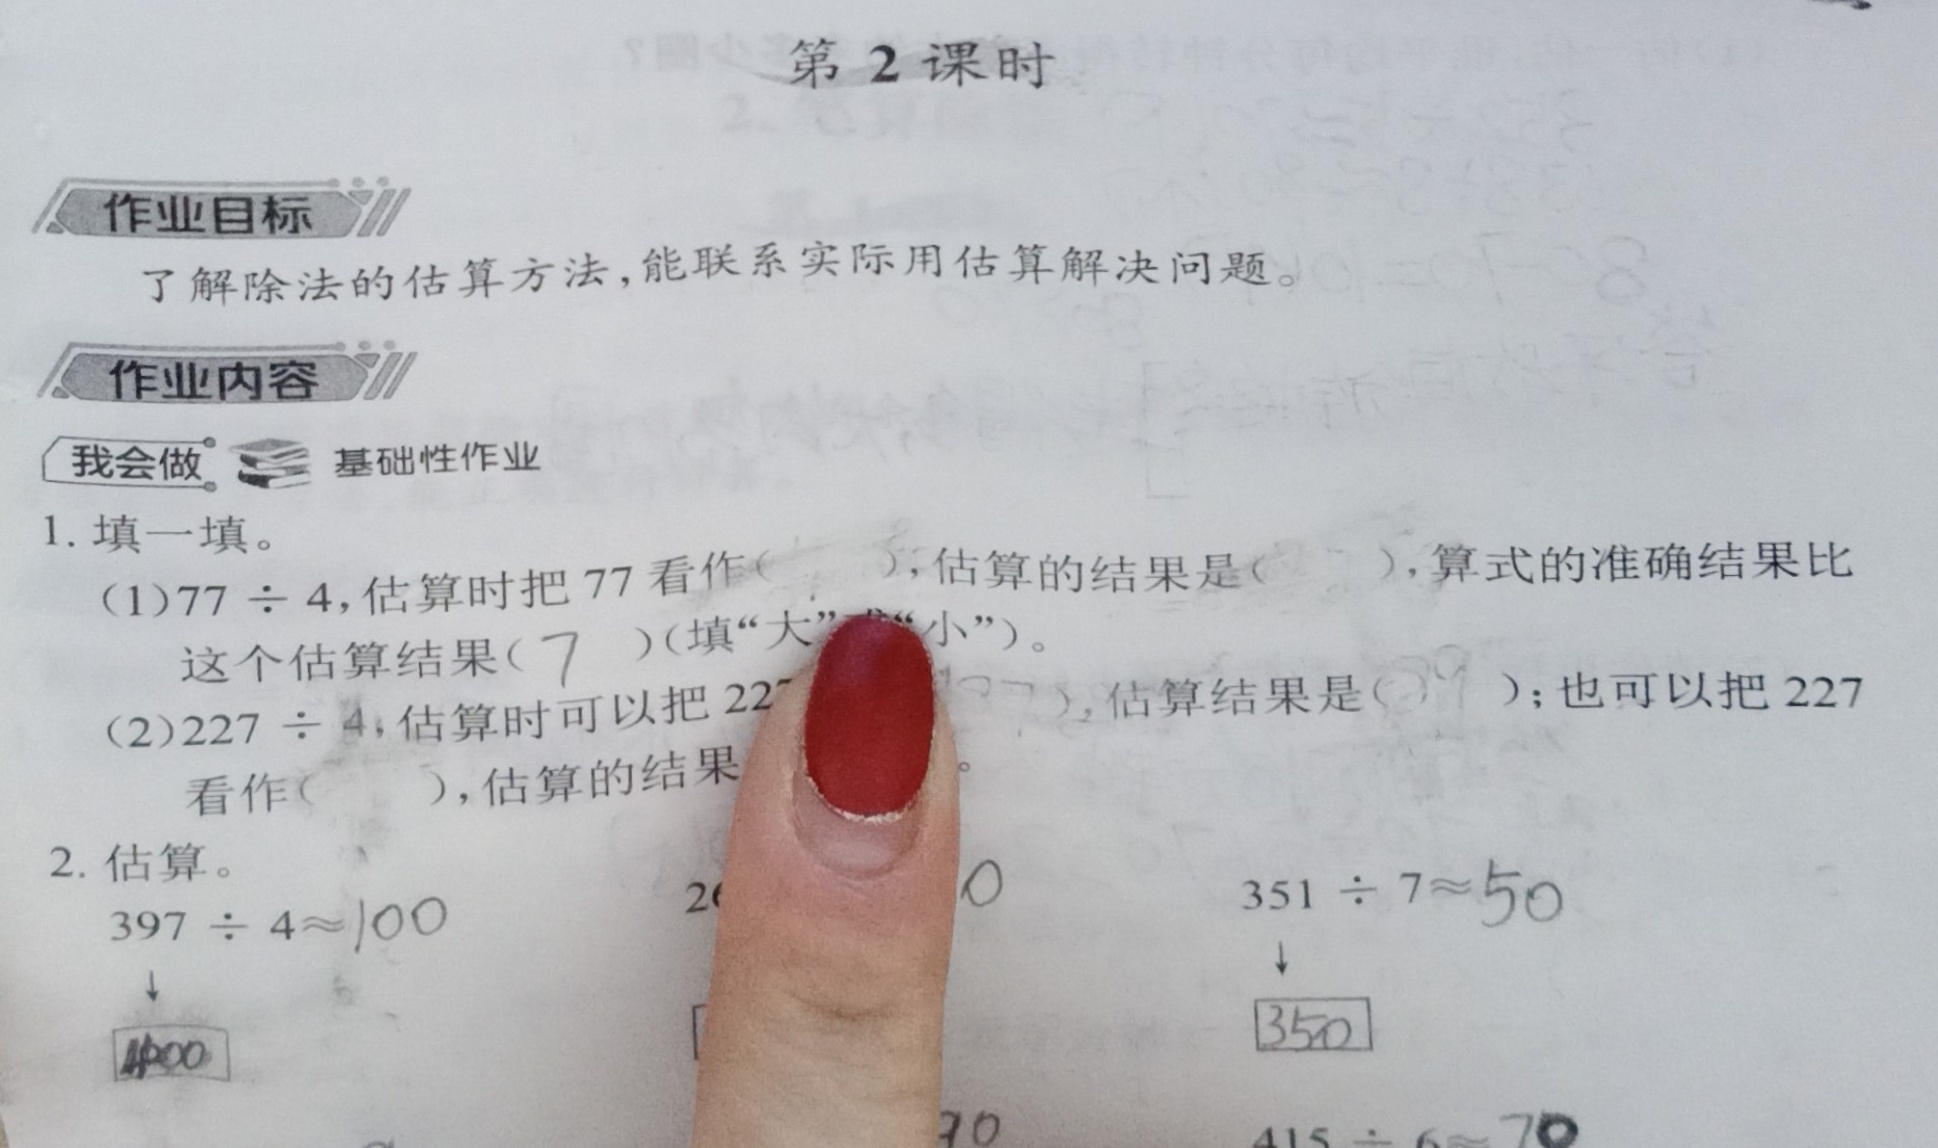 第2课时
作业目标
了解除法的估算方法,能联系实际用估算解决问题。
作业内容
我会做 基础性作业
1. 填一填。
(1)77 ÷ 4,估算时把 77 看作( ),估算的结果是( ),算式的准确结果比
这个估算结果(7 )(填“大” “小”)。
(2)227 ÷ 4,估算时可以把 22 ),估算结果是( );也可以把 227
看作( ),估算的结果 。
2. 估算。
397 ÷ 4≈100 26 0 351 ÷ 7≈50
↓ ↓
400 350
70 415 ÷ 6≈70